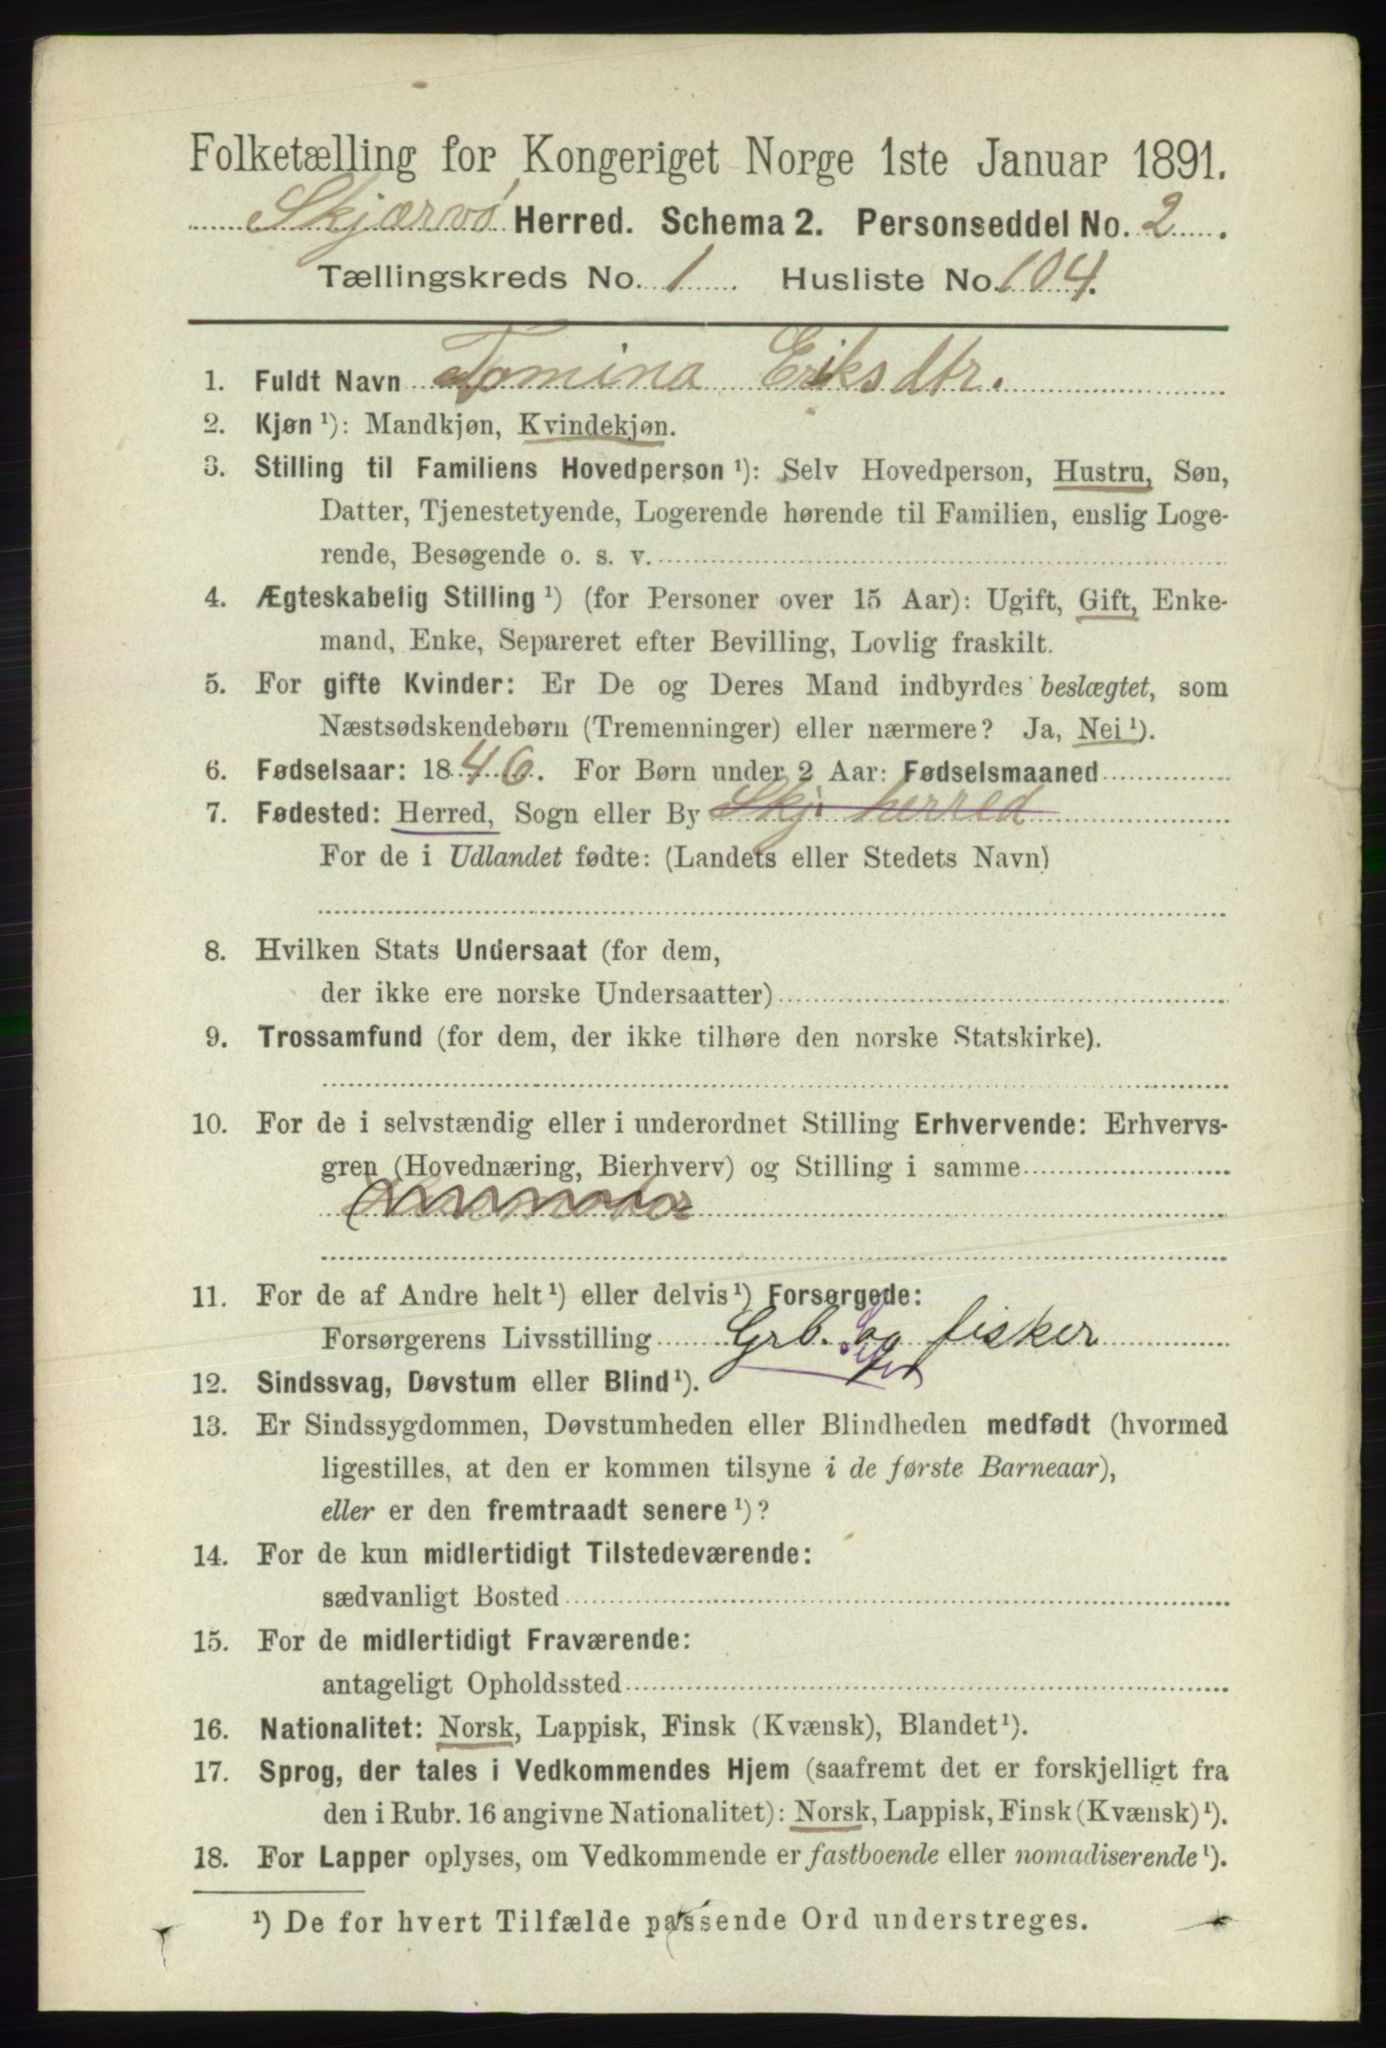 Folketælling for Kongeriget Norge 1ste Januar 1891.
Skjærvö Herred. Schema 2. Personseddel No. 2.
Tællingskreds No. 1 Husliste No. 104.
1. Fuldt Navn Tomina Eriksdtr.
2. Kjøn ¹): Mandkjøn, Kvindekjøn.
3. Stilling til Familiens Hovedperson ¹): Selv Hovedperson, Hustru, Søn,
Datter, Tjenestetyende, Logerende hørende til Familien, enslig Loge-
rende, Besøgende o. s. v.
4. Ægteskabelig Stilling ¹) (for Personer over 15 Aar): Ugift, Gift, Enke-
mand, Enke, Separeret efter Bevilling, Lovlig fraskilt.
5. For gifte Kvinder: Er De og Deres Mand indbyrdes beslægtet, som
Næstsødskendebørn (Tremenninger) eller nærmere? Ja, Nei ¹).
6. Fødselsaar: 1846. For Børn under 2 Aar: Fødselsmaaned
7. Fødested: Herred, Sogn eller By Skj. herred
For de i Udlandet fødte: (Landets eller Stedets Navn)
8. Hvilken Stats Undersaat (for dem,
der ikke ere norske Undersaatter)
9. Trossamfund (for dem, der ikke tilhøre den norske Statskirke).
10. For de i selvstændig eller i underordnet Stilling Erhvervende: Erhvervs-
gren (Hovednæring, Bierhverv) og Stilling i samme
11. For de af Andre helt ¹) eller delvis ¹) Forsørgede:
Forsørgerens Livsstilling Grb. og fisker
12. Sindssvag, Døvstum eller Blind ¹).
13. Er Sindssygdommen, Døvstumheden eller Blindheden medfødt (hvormed
ligestilles, at den er kommen tilsyne i de første Barneaar),
eller er den fremtraadt senere ¹)?
14. For de kun midlertidigt Tilstedeværende:
sædvanligt Bosted
15. For de midlertidigt Fraværende:
antageligt Opholdssted
16. Nationalitet: Norsk, Lappisk, Finsk (Kvænsk), Blandet ¹).
17. Sprog, der tales i Vedkommendes Hjem (saafremt det er forskjelligt fra
den i Rubr. 16 angivne Nationalitet): Norsk, Lappisk, Finsk (Kvænsk) ¹).
18. For Lapper oplyses, om Vedkommende er fastboende eller nomadiserende ¹).
¹) De for hvert Tilfælde passende Ord understreges.